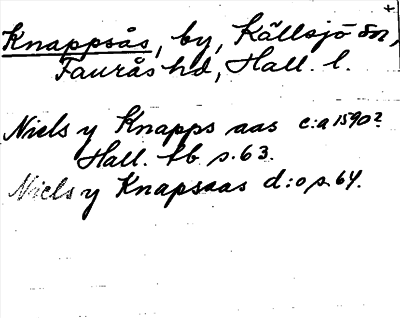 Knappsås, by, Källsjö sn,
Faurås hd, Hall. l.
Niels y Knapps aas c:a 1590?
Hall. hb s. 63.
Niels y Knapsaas d:o s. 64.